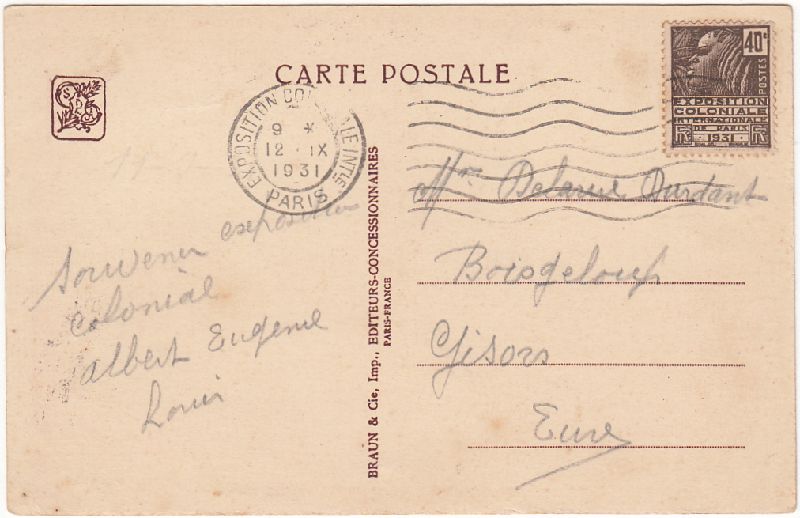 CARTE POSTALE
40c
POSTES
EXPOSITION
COLONIALE
INTERNATIONALE
DE PARIS
1931
EXPOSITION COLONIALE INTLE
9 *
12 · IX
1931
PARIS
Souvenir exposition
colonial
albert Eugenie
Louis
BRAUN & Cie, Imp., EDITEURS-CONCESSIONNAIRES
PARIS-FRANCE
Mme Delarue Durdant
Boisgeloup
Gisors
Eure